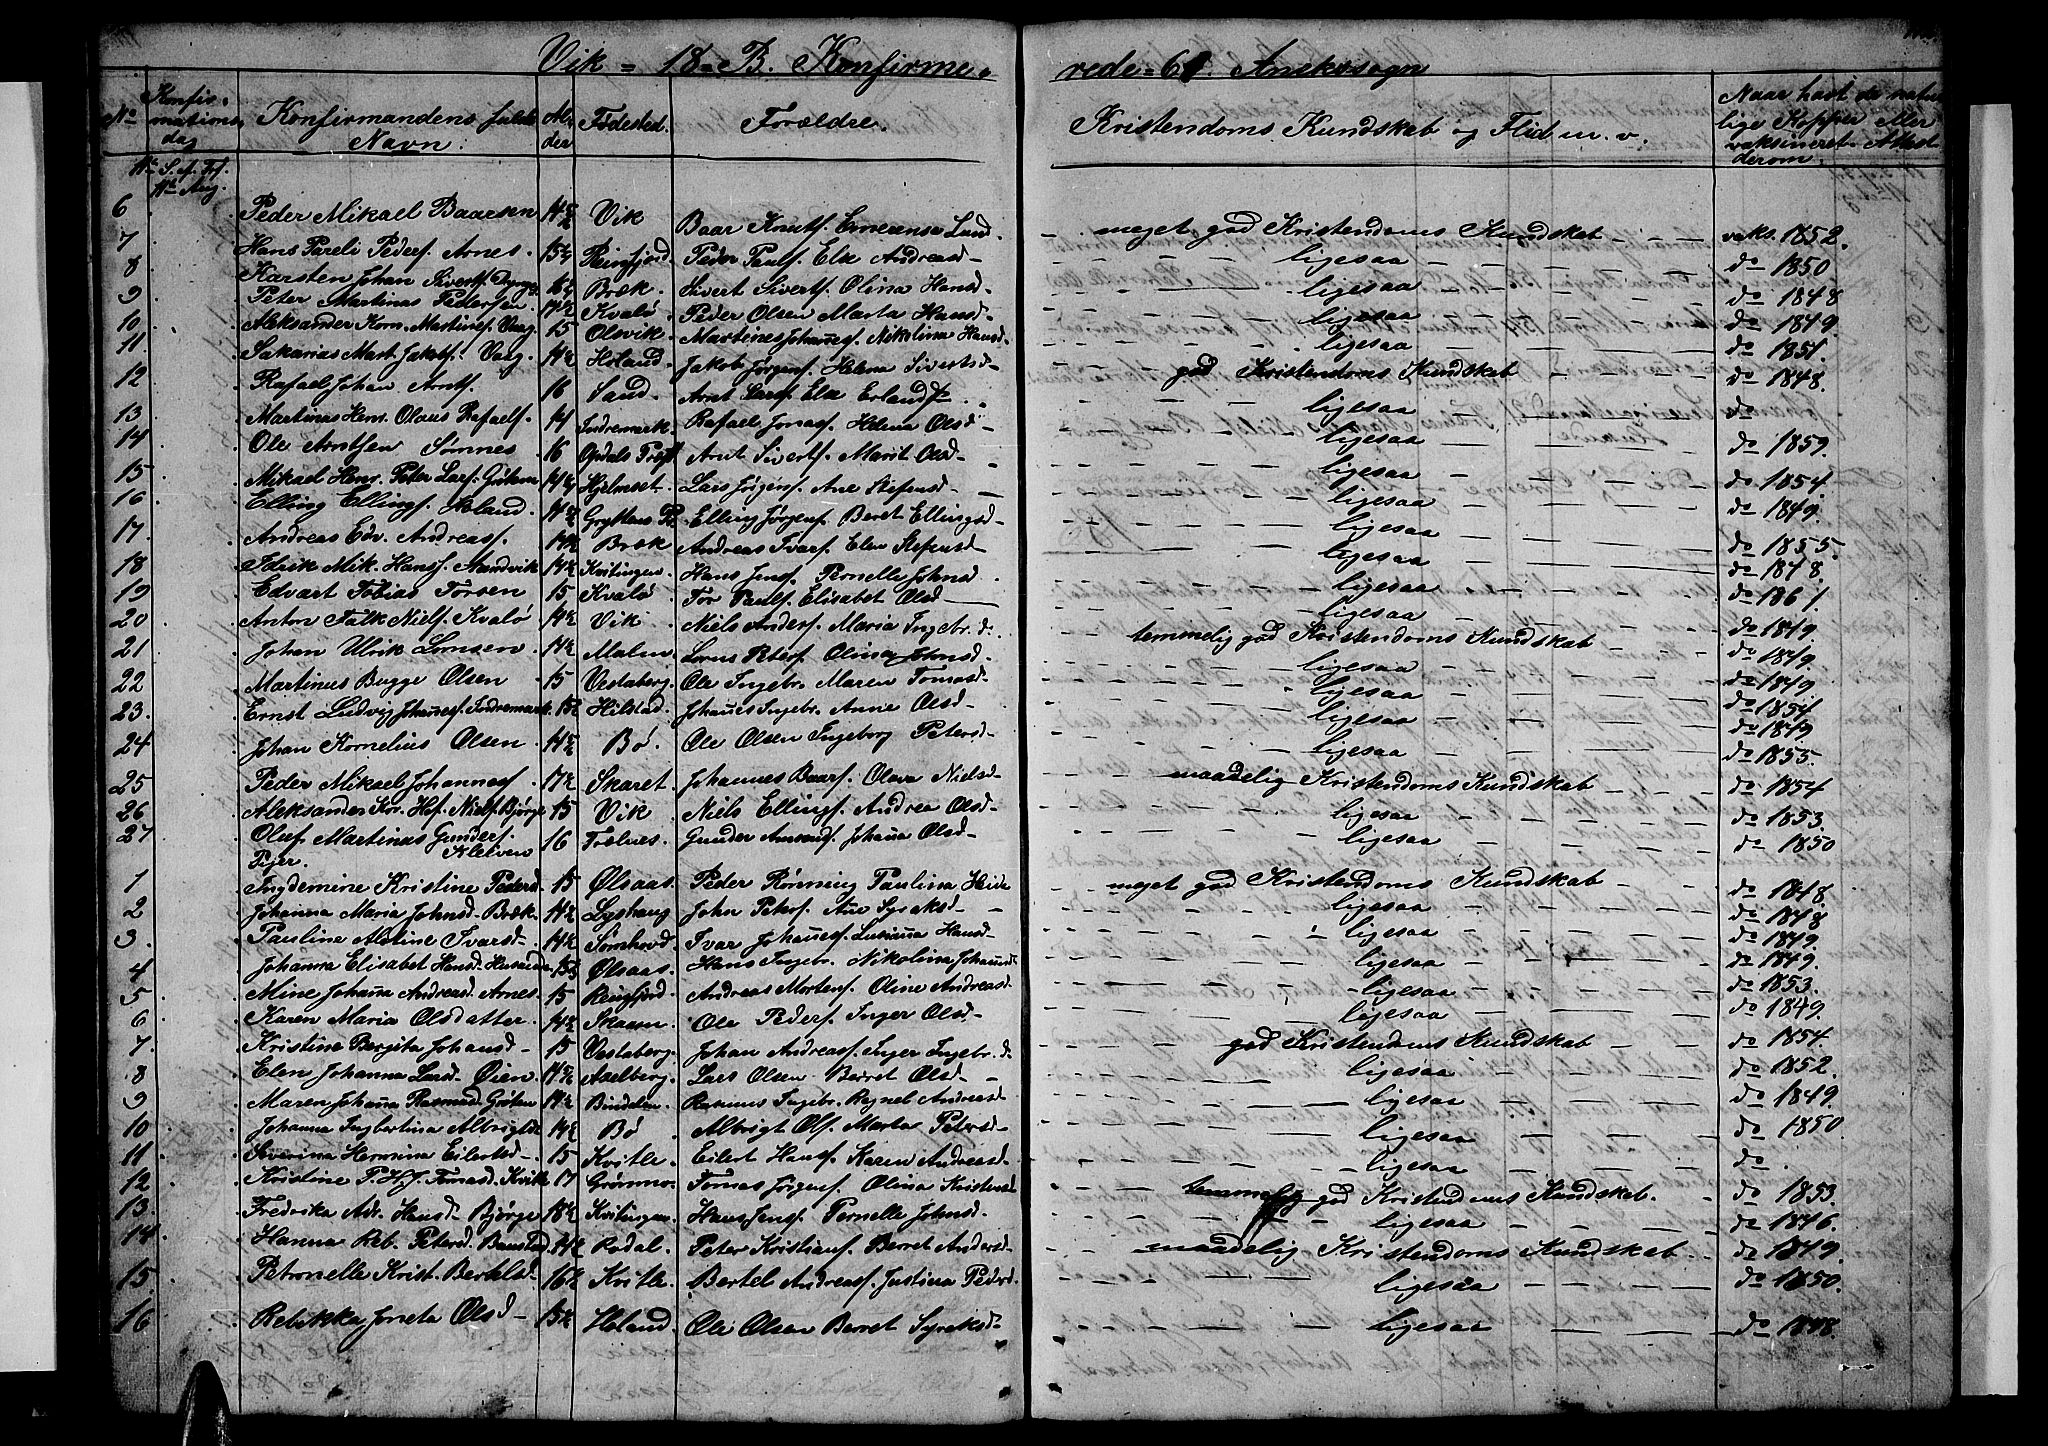 Vik = 18 = B. Konfirme- rede = 61. Annekssogn
No Konfirmations dag Konfirmandens fulde Navn: Alder Fødested. Forældre. Kristendoms Kundskab og Flid m. v. Naar havt de naturlige Kopper eller vaksineret. Attest derom.
11te S. e. Tr. 11te Aug.
6 Peder Mikael Baarsen Vik Baar Knutf. Emerensa Lund meget god Kristendoms Kundskab vaks. 1852.
7 Hans Pareli Pedersf. Arnes Reinfjord Peder Paulf. Ele Andreasd ligesaa do 1850
8 Karsten Johan Sivertf. Bræk. Sivert Sivertf. Olina Hansd ligesaa do 1848
9 Peter Martinus Pedersen Kvalø Peder Olsen Marta Hansd ligesaa do 1849.
10. Aleksander Korn. Martinesf. Vaag 15 Olsvik Martines Johannesf. Nikolina Hansd ligesaa do 1851.
11 Sakarias Mart. Jakobf. Vaag Holand Jakob Jørgensf. Helena Sivertsd god Kristendoms Kundskab do 1848.
12 Rafael Johan Arntf. 16 Sand. Arnt Larsf. Ele Erlandd ligesaa do
13 Martinus Henr. Olaus Rafaelf. 14 Indremark Rafael Jonasf. Helena Olsd ligesaa do 1859.
14 Ole Arntsen Sømnes 16 Opdals Arnt Sivertf. Marit Olsd ligesaa do 1854
15 Mikael Henr. Peter Larsf. Hjelmset. Lars Jørgensf. Ane Stefensd ligesaa do 1849.
16 Elling Ellingf. Holand. Gryttens Pr. Elling Jørgensf. Beret Ellingsd ligesaa do 1855.
17. Andreas Edv. Andreasf. Bræk Andreas Ivarsf. Elen Stefensd ligesaa do 1848.
18 Mik. Hansf. Sandvik Kvitingen Hans Jensf. Pernelle Johnsd ligesaa do 1861.
19 Edvart Tobias Torsen 15 Kvalø Tor Paulf. Elisabet Olsd ligesaa do 1849.
20 Anton Falk Nielsf. Kvalø Vik Niels Andersf. Maria Ingebr. d. temmelig god Kristendoms Kundskab do 1849.
21 Johan Ulrik Lornsen Malm Lorns Petersf. Olina Johnsd. ligesaa do 1849
22 Martinus Bugge Olsen 15 Vestaberg. Ole Ingebr. Maren Tomasd ligesaa do 1854
23. Ernst Ludvig Johannesf. Indremark Hilstad. Johannes Ingebr. Anne Olsd ligesaa do 1849
24 Johan Kornelius Olsen Bø. Ole Olsen Ingeborg Petersd ligesaa do 1855.
25 Peder Mikael Johannesf. 17½ Skaret Johannes Baarsf. Olava Nielsd maadelig Kristendoms Kundskab do 1854
26 Aleksander Kor. Nielsf. Bjørge 15 Vik Niels Ellingf. Andrea Olsd ligesaa do 1853.
27 Oluf Martinus Gundersf. Kleiven 16 Trælnes. Gunder Amundf. Johanna Olsd ligesaa do 1850
Piger.
1 Ingdemine Kristine Pedersd 15 Ølsaas. Peder Rønning Paulina meget god Kristendoms Kundskab do 1848.
2 Johanna Maria Johnsd Bræk. Lyshaug John Petersf. Ane Syraksd ligesaa do 1848
3. Pauline Aldine Ivarsd Sømhovd. Ivar Johannesf. Lusianna Hansd ligesaa do 1849.
4 Johanna Elisabet Hansd. Ølsaas. Hans Ingebr. Nikolina Johannsd ligesaa do 1849.
5 Mine Johanna Andreasd. Arnes. 15 Reinfjord. Andreas Mortensf. Oline Andreasd. ligesaa do 1853.
6 Karen Maria Olsdatter Skaren Ole Pedersf. Inger Olsd ligesaa do 1849.
7. Kristine Bergita Johansd 15 Vestaberg. Johan Andreasf. Inger Ingebr. d. god Kristendoms Kundskab do 1854.
8 Elen Johanna Larsd. Øien Axelberg. Lars Olsen Berret Olsd ligesaa do 1852.
9 Maren Johanna Rasmusd. Bindalen Rasmus Ingebr. Ragnel Andreasd ligesaa do 1849
10 Johanna Ingbertina Albrigtd Bø. Albrigt Olf. Marta Petersd ligesaa do 1850.
11 Severina Hermina Eilertsd 15 Kvitle. Eilert Hansf. Karen Andreasd ligesaa do
12 Kristine P. H. J. Tomasd. Kvik 17 Grønmo. Tomas Jørgensf. Olina Kristensd temmelig god Kristendoms Kundskab. do 1853
13. Fredrika Adr. Hansd. Bjørge 18½ Kvitingen Hans Jensf. Pernelle Johnsd. ligesaa do 1846.
14 Hanna Reb. Petersd. Baustad Rodal. Peter Kristiansf. Berret Andersd maadelig Kristendoms Kundskab do 1849.
15. Petronelle Krist. Bertelsd 16½ Kvitle. Bertel Andreasf. Justina Pedersd ligesaa do 1850.
16 Rebekka Joneta Olsd 15½ Holand. Ole Olsen Berret Syraksd ligesaa do 1848.